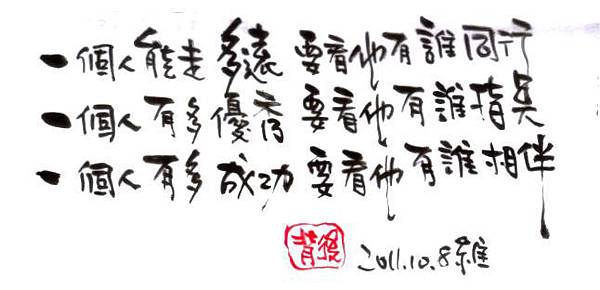 一個人能走多遠 要看他有誰同行
一個人有多優秀 要看他有誰指奌
一個人有多成功 要看他有誰相伴
2011.10.8